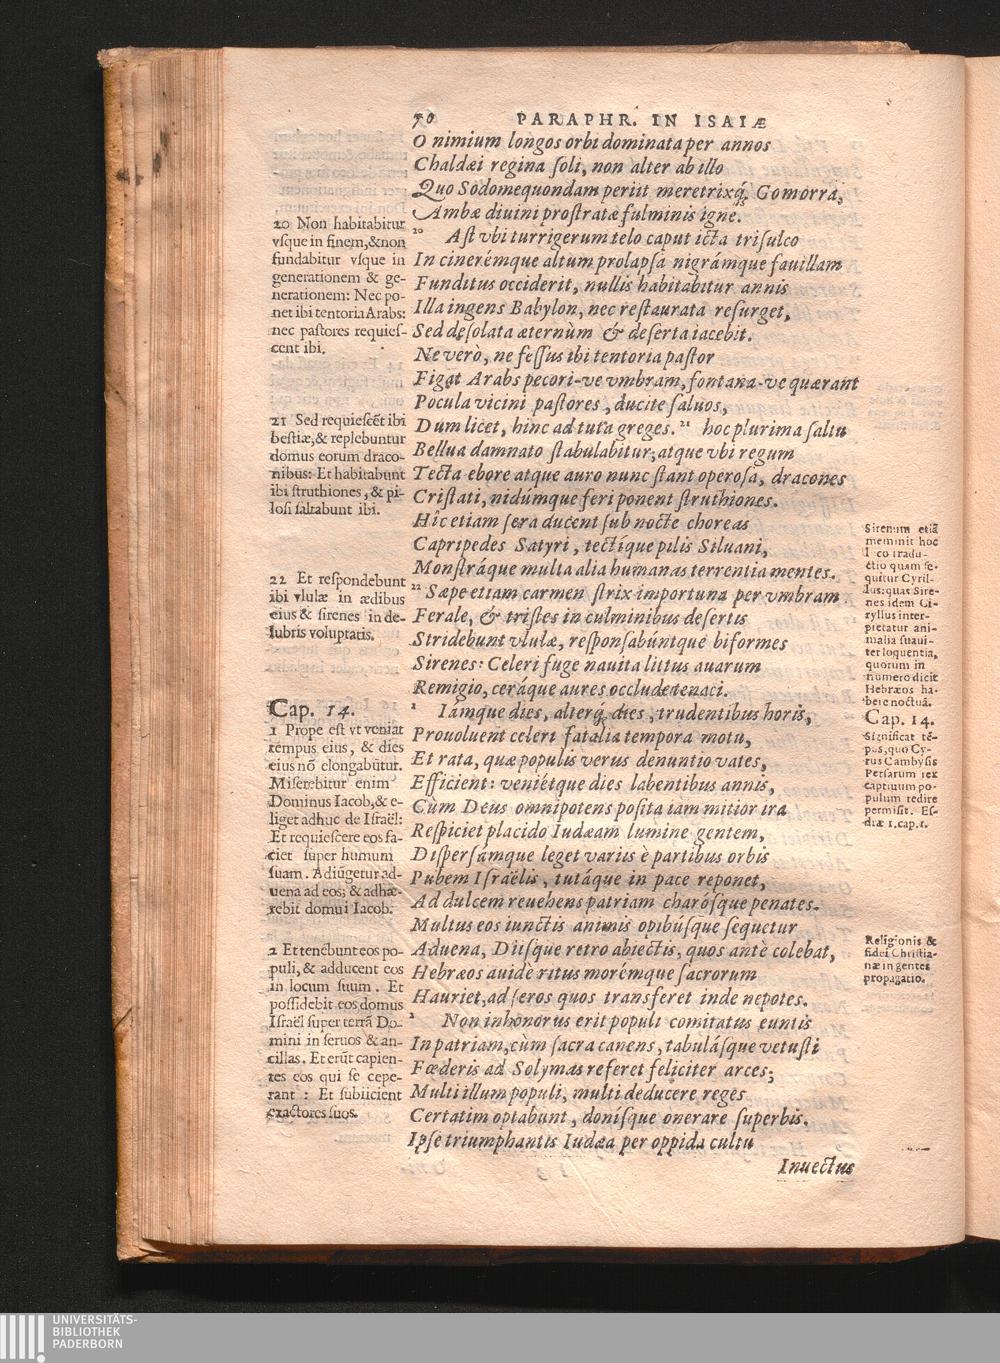 70 PARAPHR. IN ISAIÆ
O nimium longos orbi dominata per annos
Chaldæi regina soli, non alter ab illo
Quo Sodome quondam periit meretrixq́; Gomorra,
Ambæ diuini prostratæ fulminis igne.
20 Ast vbi turrigerum telo caput icta trisulco
In cinerémque altum prolapsa nigrámque fauillam
Funditus occiderit, nullis habitabitur annis
Illa ingens Babylon, nec restaurata resurget,
Sed desolata æternùm & deserta iacebit.
Ne verò, ne fessus ibi tentoria pastor
Figat Arabs pecori-ve vmbram, fontana-ve quærant
Pocula vicini pastores, ducite saluos,
Dum licet, hinc ad tuta greges. 21 hoc plurima saltu
Bellua damnato stabulabitur; atque vbi regum
Tecta ebore atque auro nunc stant operosa, dracones
Cristati, nidúmque feri ponent struthiones.
Hic etiam sera ducent sub nocte choreas
Capripedes Satyri, tectíque pilis Siluani,
Monstráque multa alia humanas terrentia mentes.
22 Sæpe etiam carmen strix importuna per vmbram
Ferale, & tristes in culminibus desertis
Stridebunt vlulæ, responsabúntque biformes
Sirenes: Celeri fuge nauita littus auarum
Remigio, ceráque aures occlude tenaci.
1 Iámque dies, alterq́; dies, trudentibus horis,
Prouoluent celeri fatalia tempora motu,
Et rata, quæ populis verus denuntio vates,
Efficient: veniétque dies labentibus annis,
Cùm Deus omnipotens posita iam mitior ira
Respiciet placido Iudæam lumine gentem,
Dispersámque leget variis è partibus orbis
Pubem Israëlis, tutáque in pace reponet,
Ad dulcem reuehens patriam charósque penates.
Multus eos iunctis animis opibúsque sequetur
Aduena, Diisque retro abiectis, quos antè colebat,
Hebræos auidè ritus morémque sacrorum
Hauriet, ad seros quos transferet inde nepotes.
2 Non inhonorus erit populi comitatus euntis
In patriam, cùm sacra canens, tabulásque vetusti
Fœderis ad Solymas referet feliciter arces;
Multi illum populi, multi deducere reges
Certatim optabunt, donísque onerare superbis.
Ipse triumphantis Iudæa per oppida cultu
Inuectus
20 Non habitabitur
vsque in finem, & non
fundabitur vsque in
generationem & ge-
nerationem: Nec po-
net ibi tentoria Arabs:
nec pastores requies-
cent ibi.
21 Sed requiescēt ibi
bestiæ, & replebuntur
domus eorum draco-
nibus: Et habitabunt
ibi struthiones, & pi-
losi saltabunt ibi.
22 Et respondebunt
ibi vlulæ in ædibus
eius & sirenes in de-
lubris voluptatis.
Cap. 14.
1 Prope est vt veniat
tempus eius, & dies
eius nō elongabūtur.
Miserebitur enim
Dominus Iacob, & e-
liget adhuc de Israël:
Et requiescere eos fa-
ciet super humum
suam. Adiūgetur ad-
uena ad eos; & adhæ-
rebit domui Iacob.
2 Et tenēbunt eos po-
puli, & adducent eos
in locum suum. Et
possidebit eos domus
Israël super terrā Do-
mini in seruos & an-
cillas. Et erūt capien-
tes eos qui se cepe-
rant: Et subiicient
exactores suos.
Sirenum etiā
meminit hoc
loco tradu-
ctio quam se-
quitur Cyril-
lus: quas Sire-
nes idem Ci-
ryllus inter-
pretatur ani-
malia suaui-
ter loquentia,
quorum in
numero dicit
Hebræos ha-
bere noctuā.
Cap. 14.
Significat tē-
pus, quo Cy-
rus Cambysis
Persarum rex
captiuum po-
pulum redire
permisit. Es-
dræ 1. cap. 1.
Religionis &
fidei Christia-
næ in gentes
propagatio.
UNIVERSITÄTS-
BIBLIOTHEK
PADERBORN